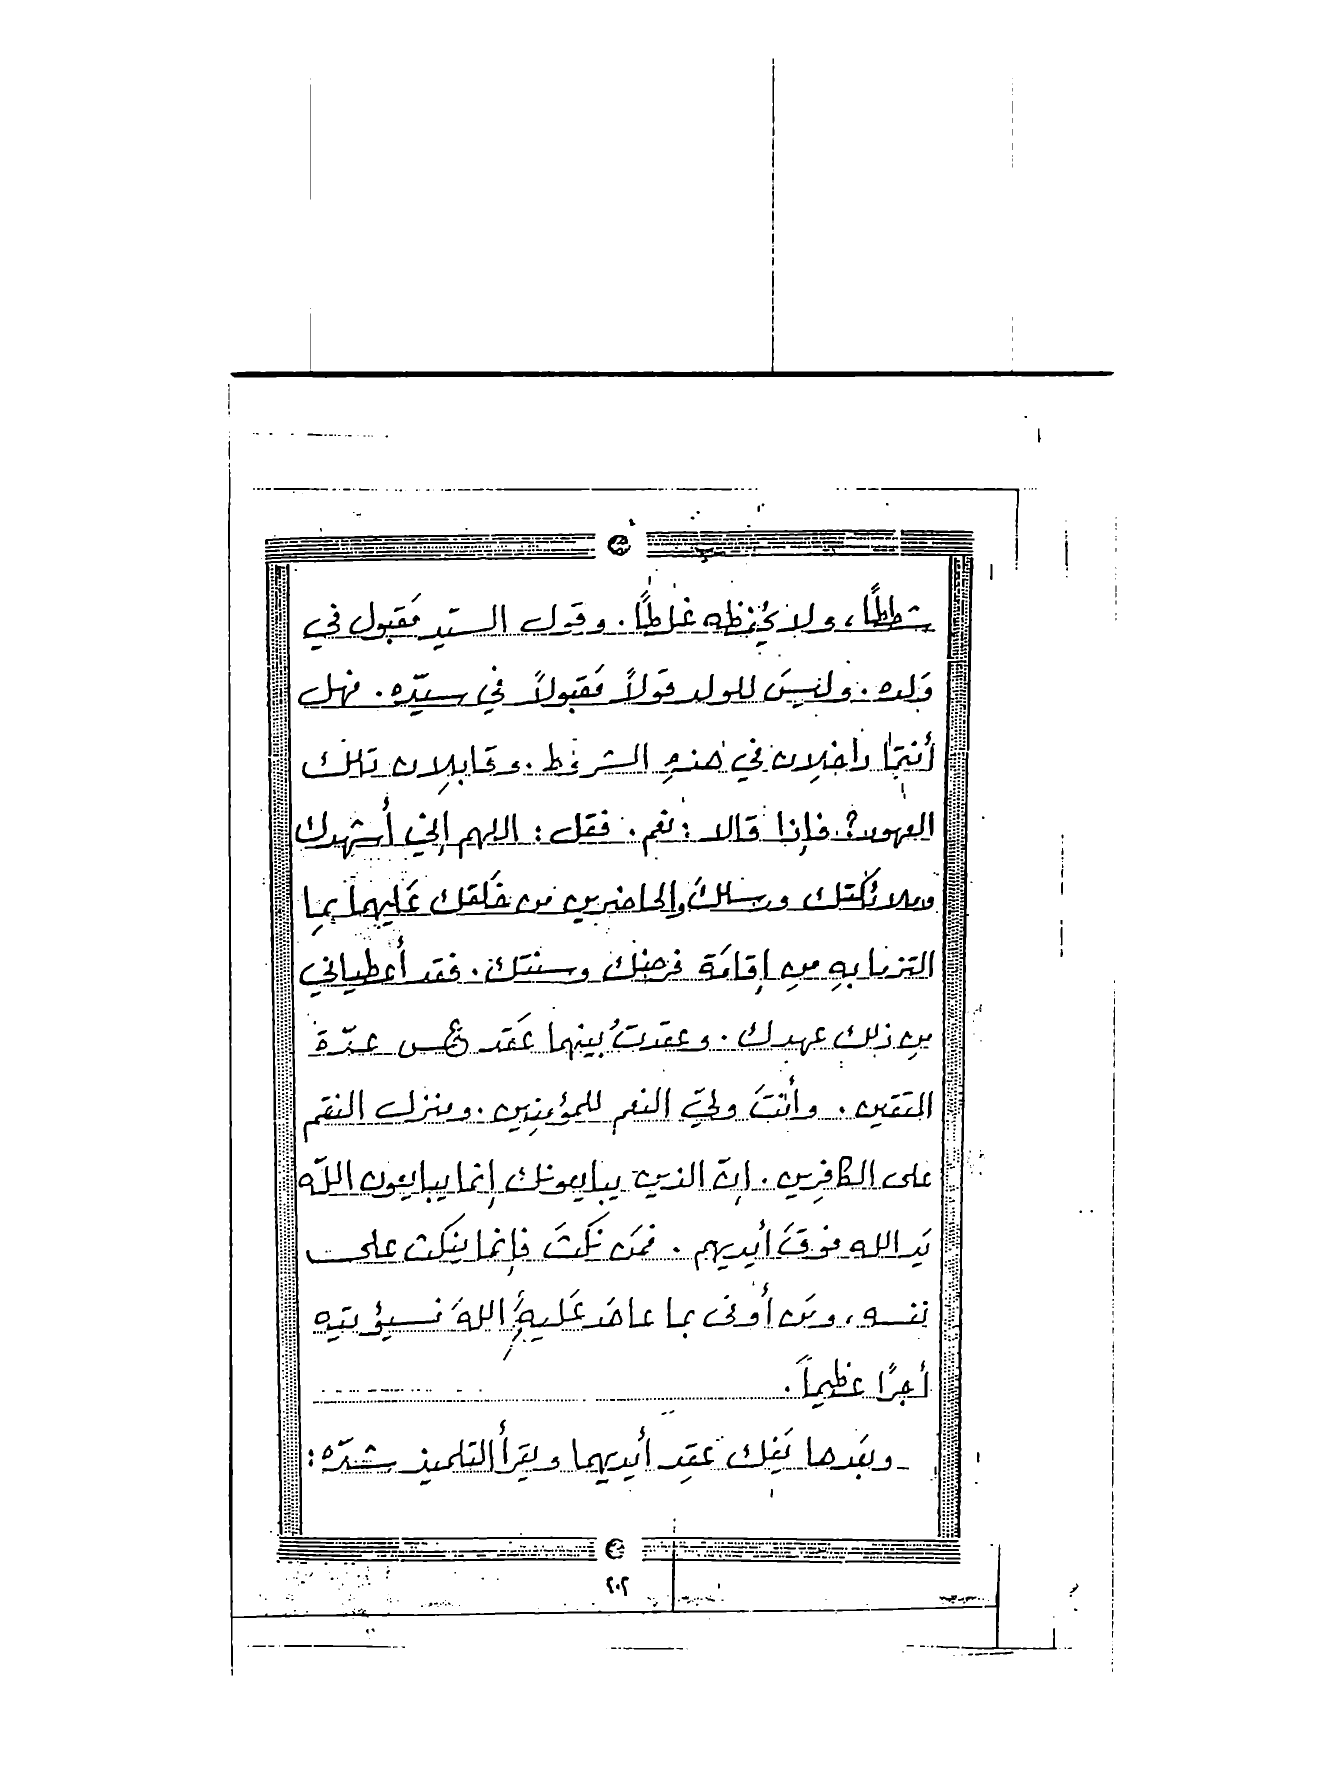 شططًا، ولا يُحفظه غلطًا. وقول السيّد مَقبول في
وَلده. وليسَ للولد قولاً مَقبولاً في سيّده. فهل
أنتما داخلان في هذهِ الشروط. وقابلان تلك
العهود؟. فإذا قالا: نعم. فقل: اللهم إني أُشهدك
وملائكتك ورسلك والحاضرين من خَلقك عَليهما بما
التزما بهِ منِ إقامَة فرضك وسنتك. فقد أعطياني
منِ ذلك عهدك. وعقدتُ بينهما عَقد عدّة
المتقين. وأنتَ وليّ النعم للمؤمنِين. ومنزل النقم
على الكافِرين. إنّ الذين يبايعونك إنما يبايعون اللّه
يَد الله فوقَ أيديهم. فمَن نَكثَ فإنما ينكث على
نفسه، ومَن أوفى بما عاهَد عَليهُ اللهَ فسيؤتيه
أجرًا عظيماً.
وبعَدها يَفك عقدِ أيديهما ويقرأ التلميذ شدّه:
٢٠٢